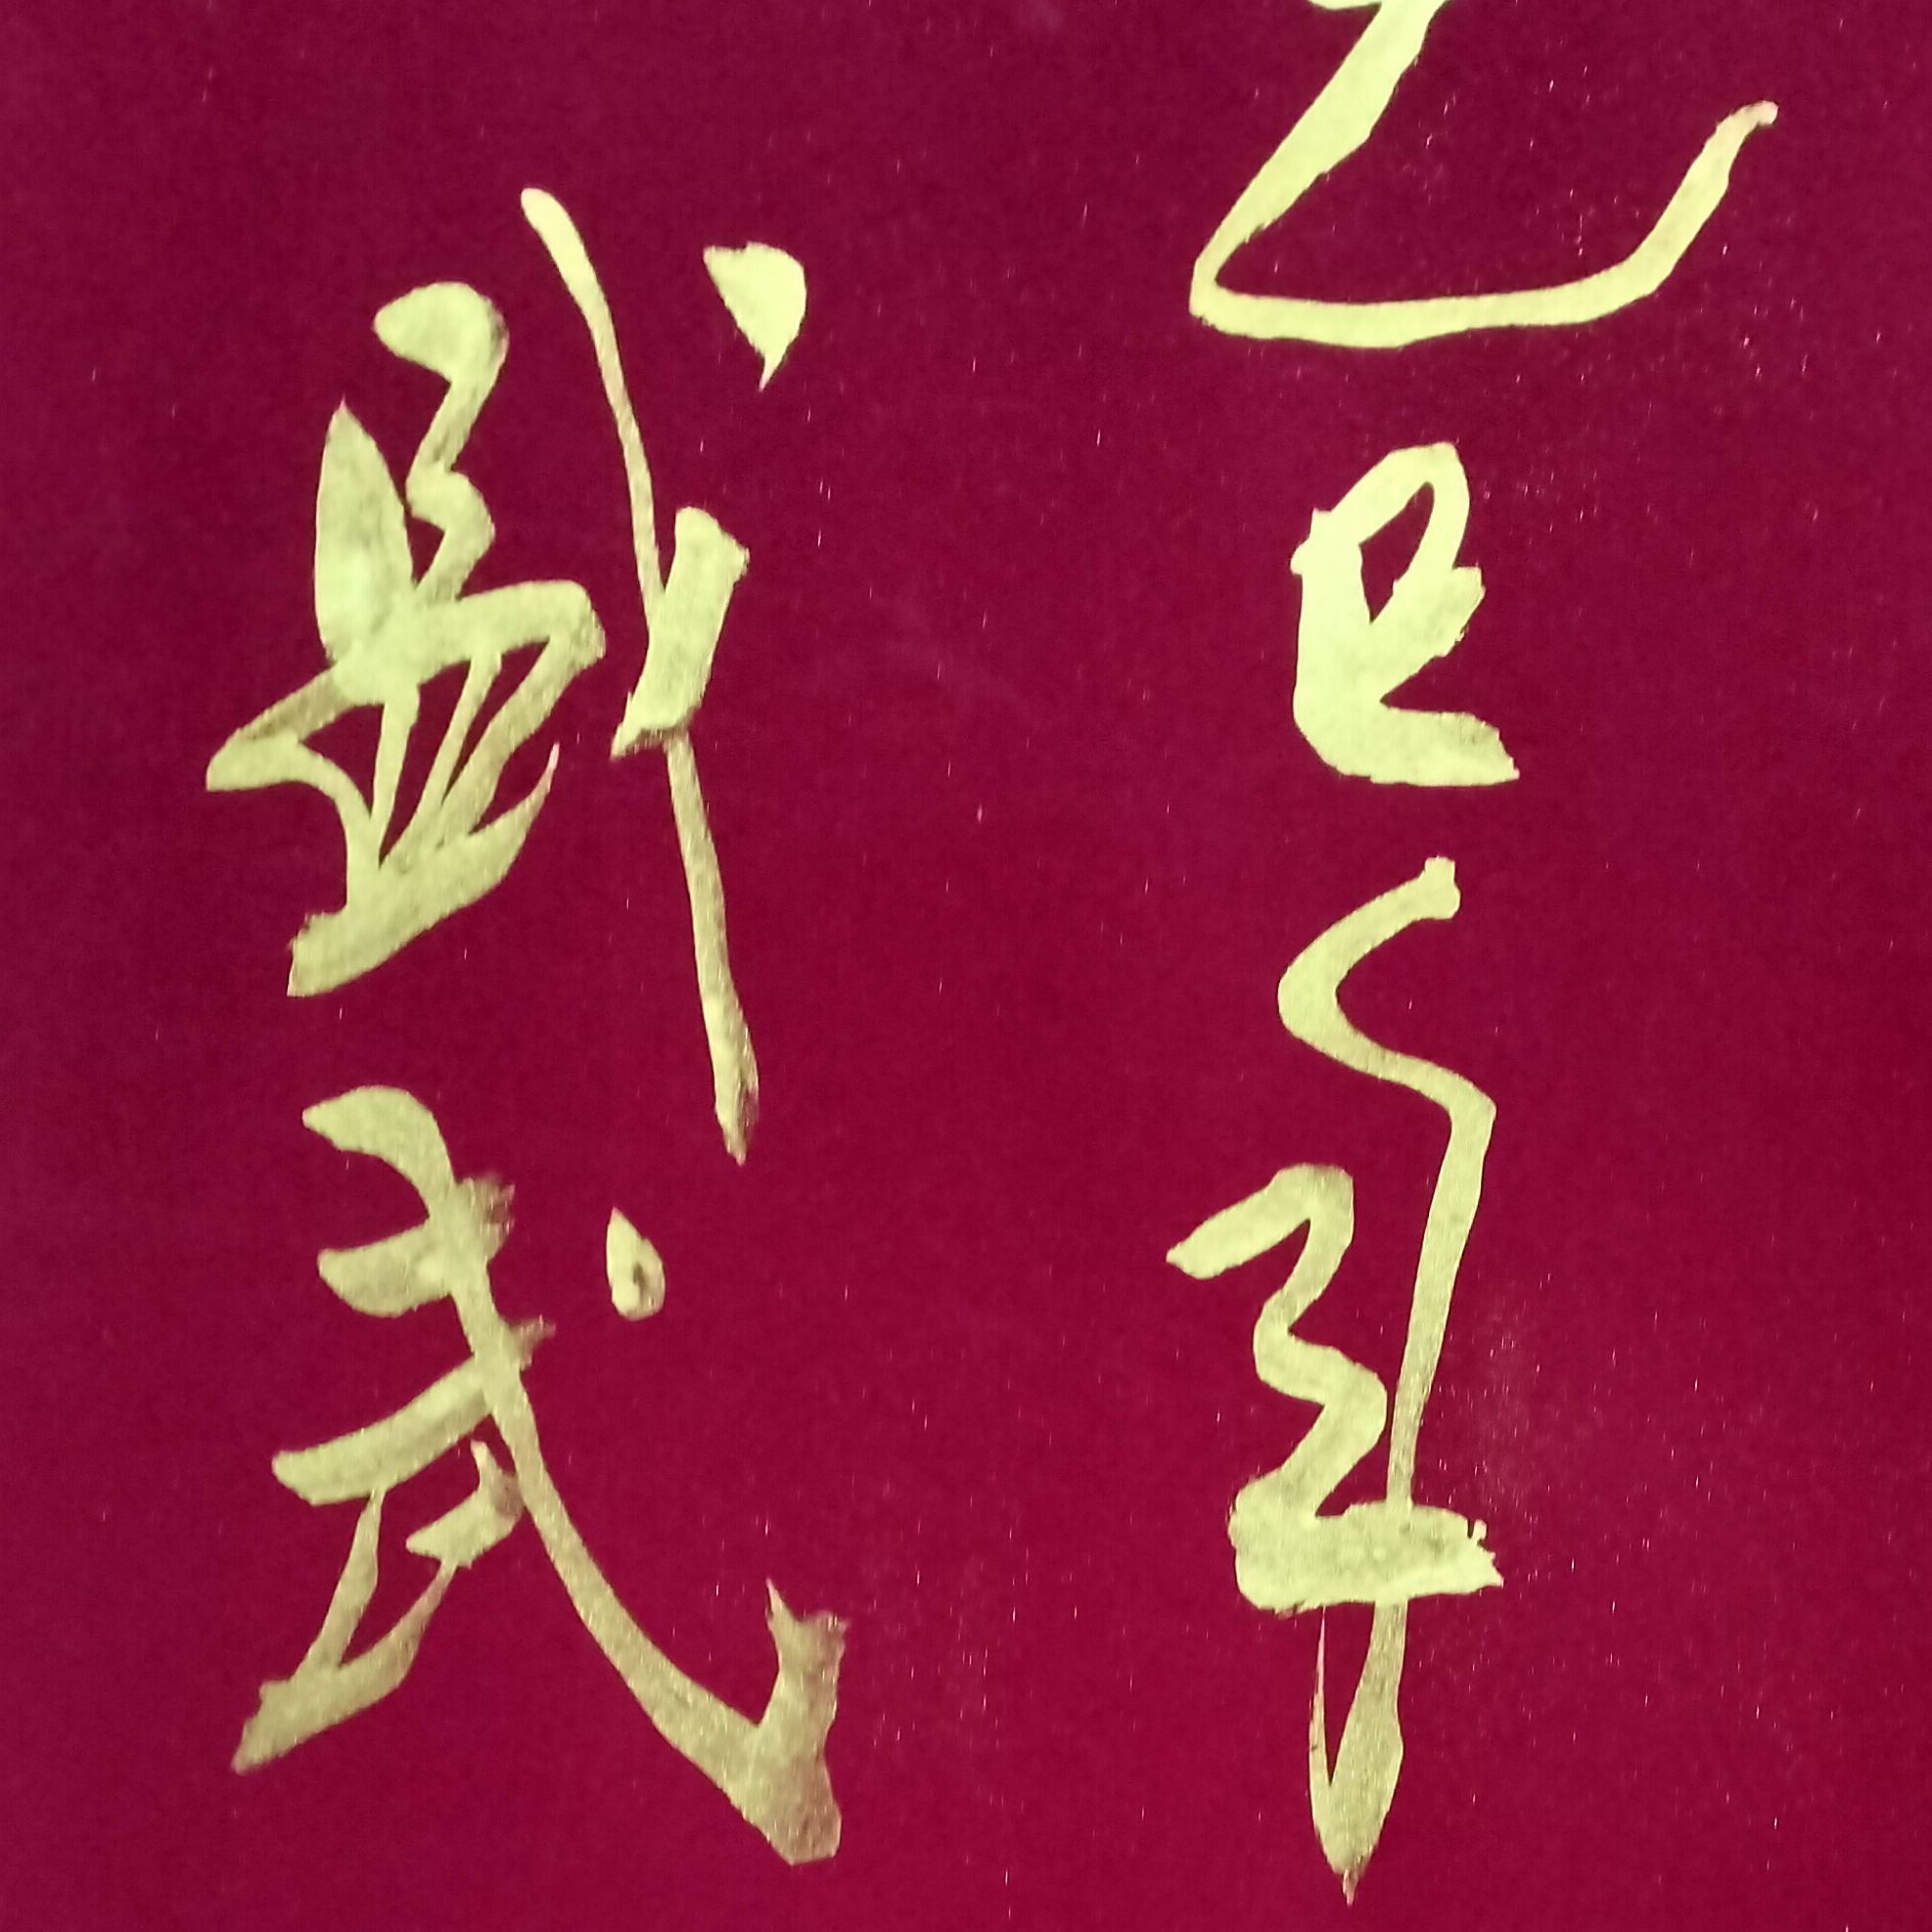 乙巳年
武